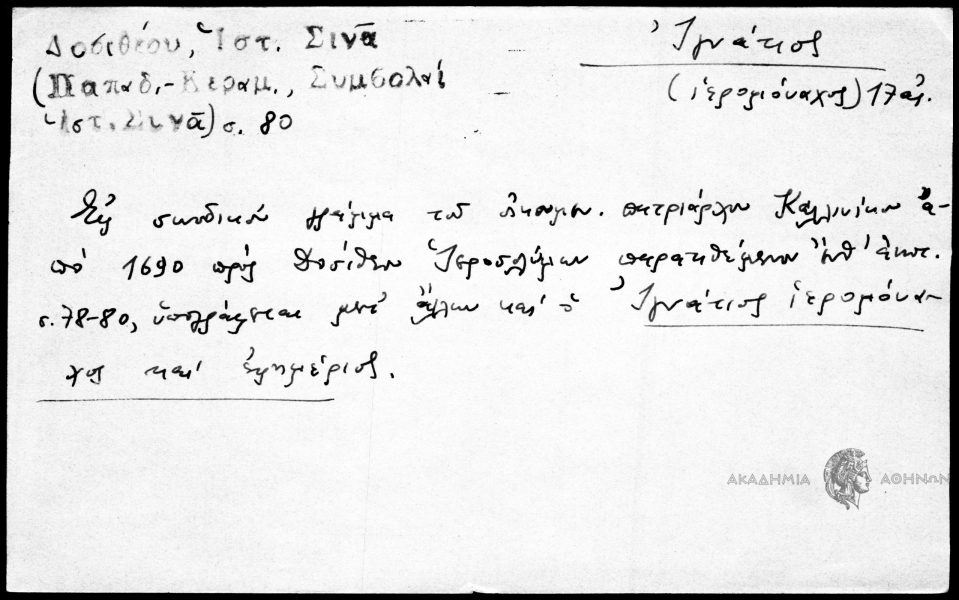 Δοσιθέου, Ἱστ. Σινᾶ
(Παπαδ.-Κεραμ., Συμβολαί
Ἱστ. Σινᾶ) σ. 80
Ἰγνάτιος
(ἱερομόναχος) 17 αἰ.
Εἰς συνοδικόν γράμμα τοῦ οἰκουμ. πατριάρχου Καλλινίκου ἀ-
πό 1690 πρός Δοσίθεον Ἱεροσολύμων παρατιθέμενον ἀνωτ.
σ. 78-80, ὑπογράφεται μετ' ἄλλων καί ὁ Ἰγνάτιος ἱερομόνα-
χος καί ἐφημέριος.
ΑΚΑΔΗΜΙΑ ΑΘΗΝΩΝ